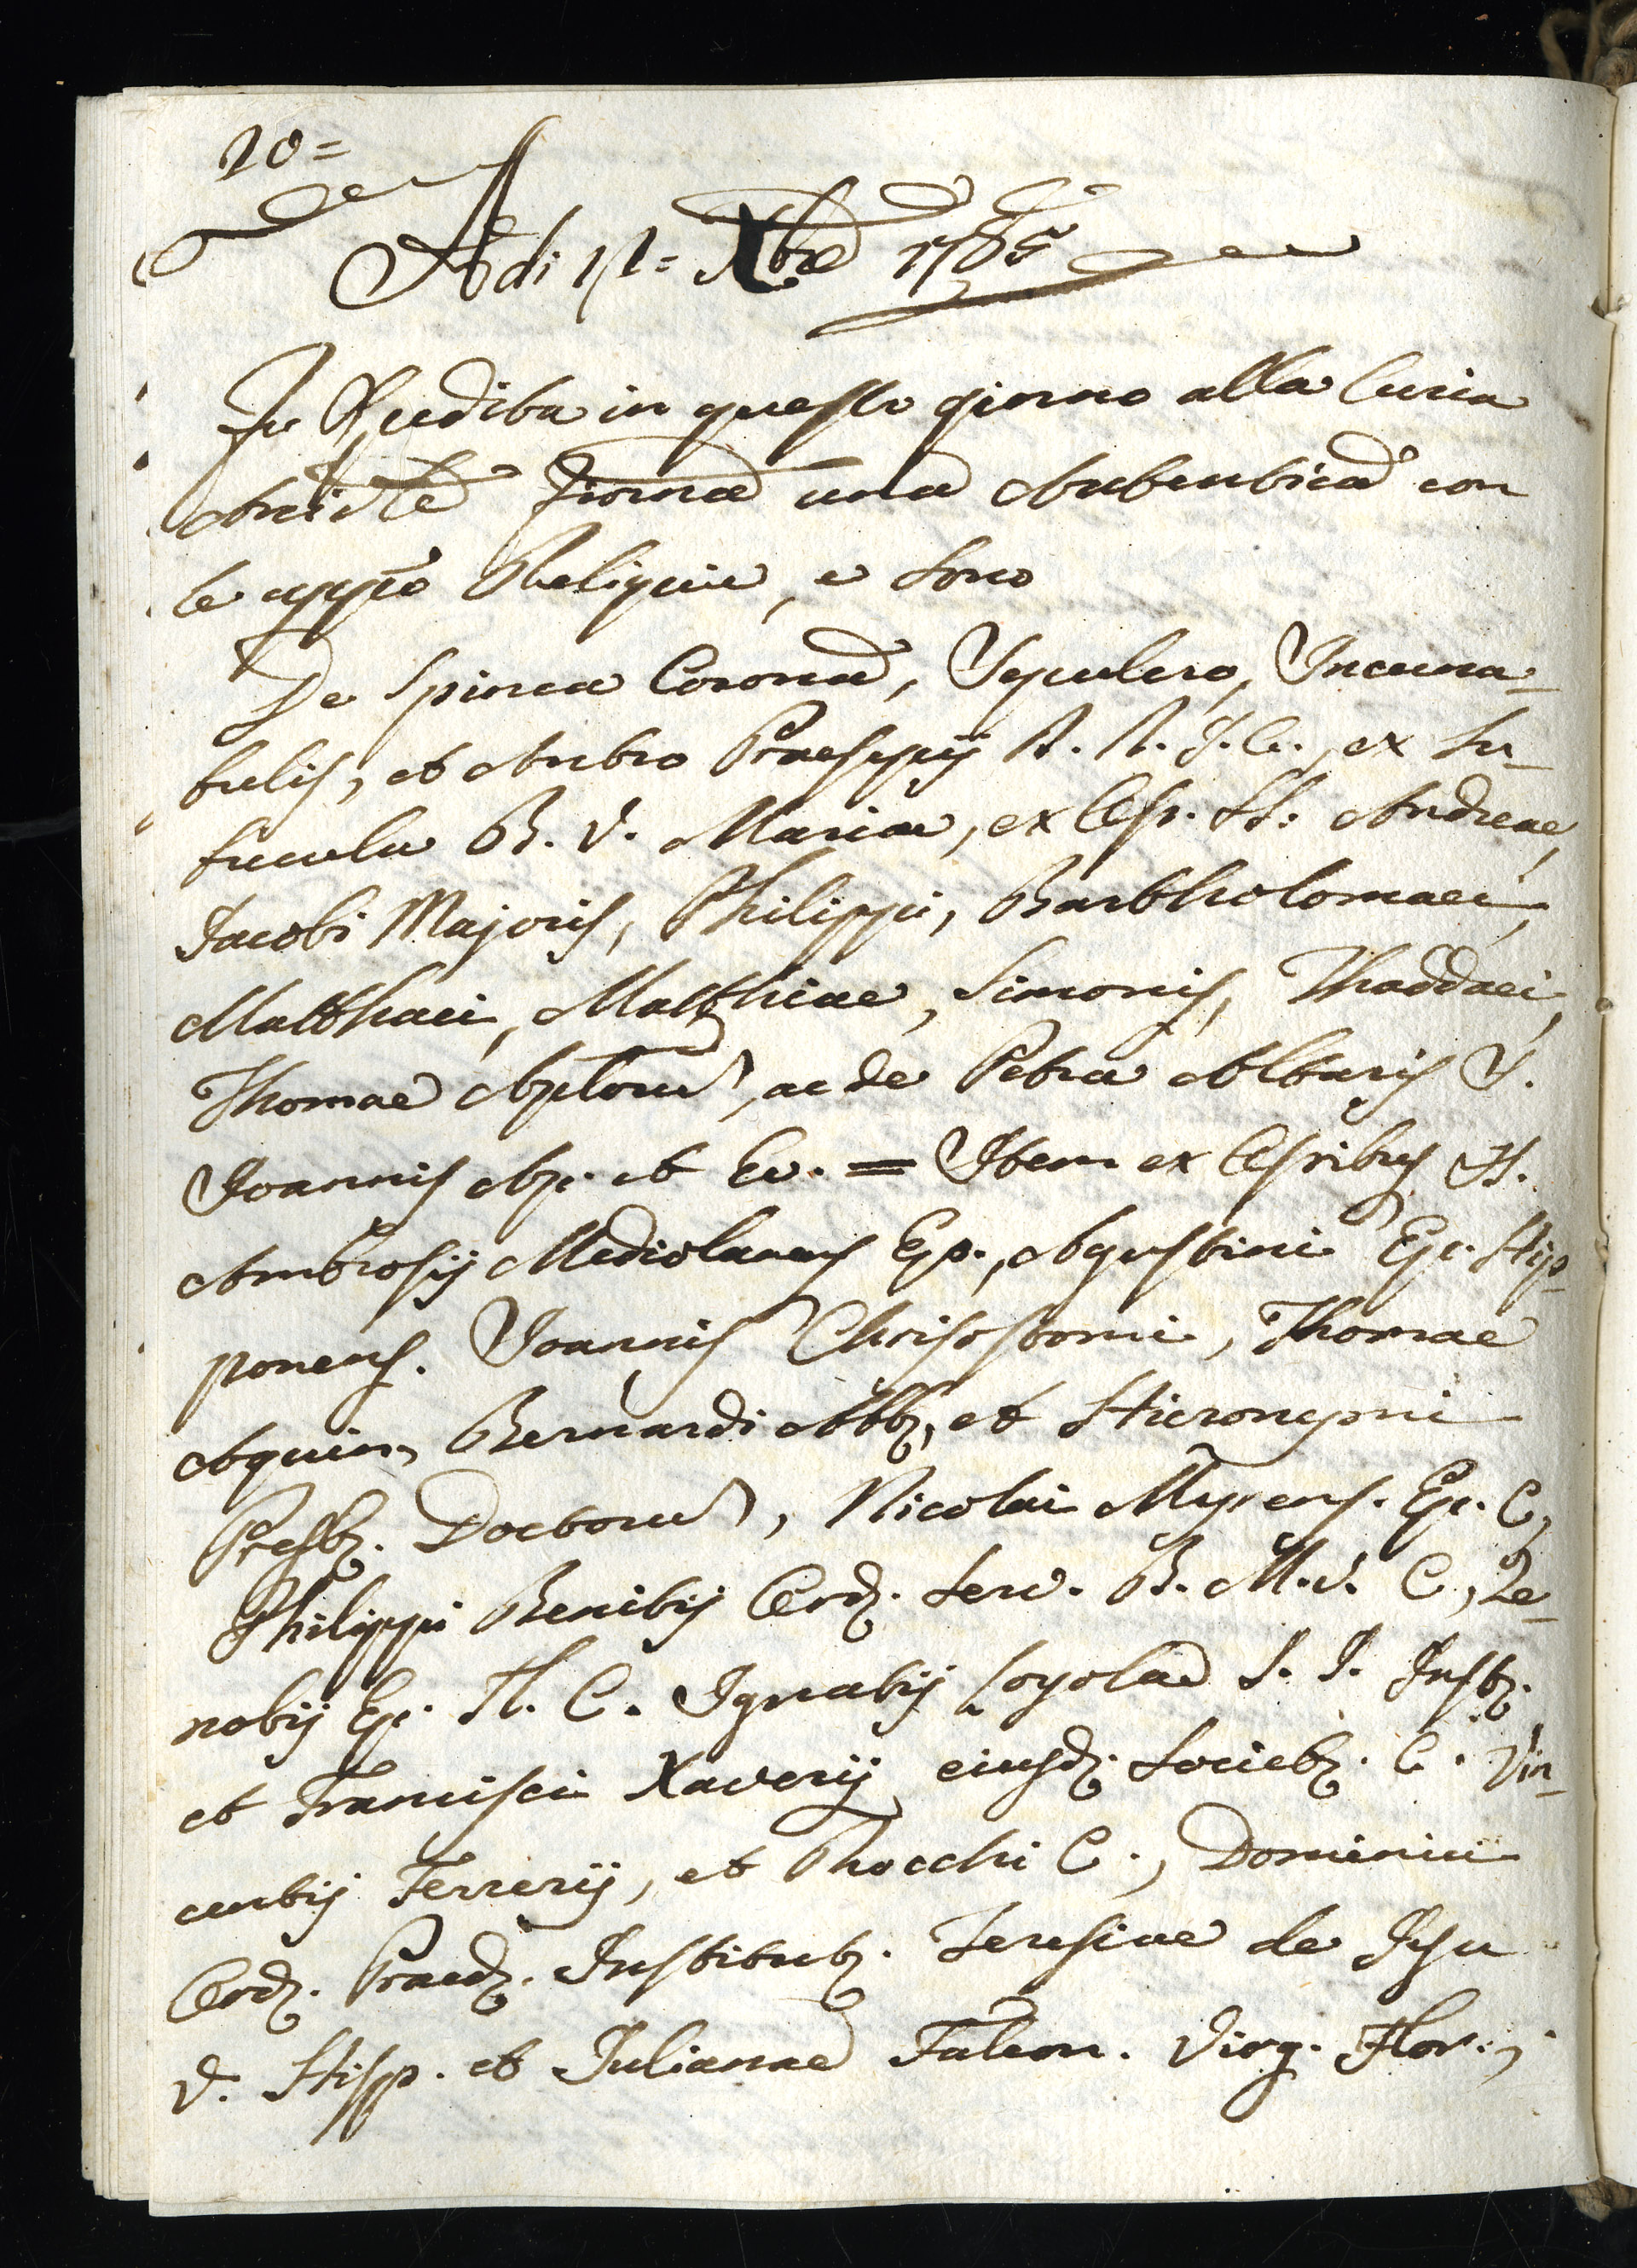 20=
Adi 11= Xbre 1765
Fu Spedita in questo giorno alla Curia
una Autentica con
le Reliquie, e sono
De Spinea Corona, Sepulcro, Incuna-
bulis, et Antro Praesepij D. N. J. C., ex In-
fucula B. V. Mariae, ex Oss. SS: Andreae,
Jacobi Majoris, Philippi, Bartholomaei,
Matthaei, Matthiae, Simonis, Thaddaei,
Thomae Aplorum, ac de Petra Altaris S.
Joannis Ap. et Ev. = Item ex Ossibus SS.
Ambrosij Mediolanens Ep., Agustini Ep. Hip-
ponens. Joannis Chrisostomi, Thomae
Aquin, Bernardi Abb, et Hieronymi
Presb. Doctorum, Nicolai Myrens. Ep. C,
Philippi Benitij Ord. Serv. B. M. V. C, Ze-
nobij Ep. Fl. C. Ignatij Loyolae S. J. Inst.
et Francisci Xaverij eiusd. Societ. C. Vin-
centij Ferrerij, et Rocchi C., Dominici
Ord. Praed. Institut. Teresiae de Jesu
V. Hisp. et Julianae Falcon. Virg. Flor.,